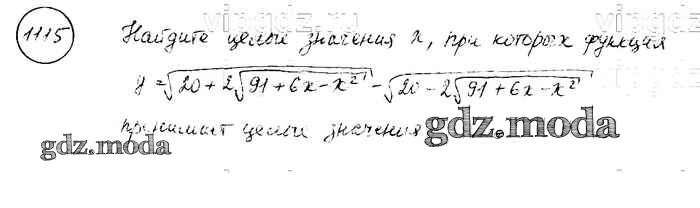 1115 Найдите целые значения x, при которых функция
y = √(20 + 2√(91 + 6x - x²)) - √(20 - 2√(91 + 6x - x²))
принимает целые значения
gdz.moda
gdz.moda